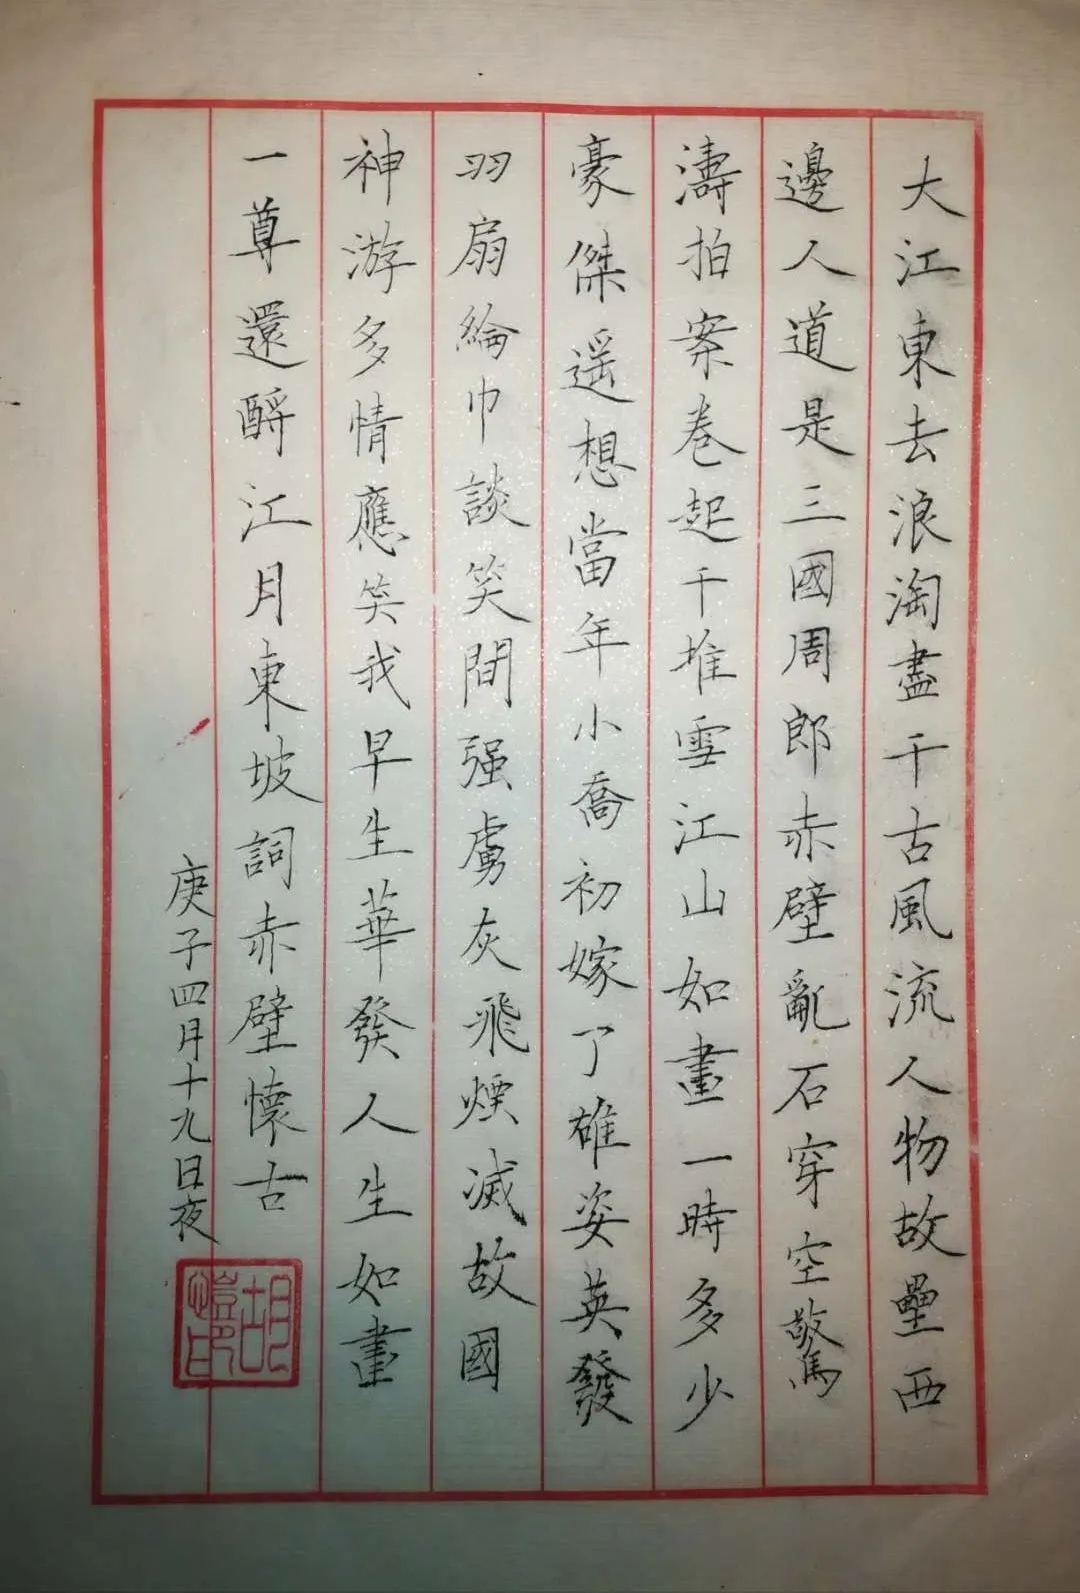 大江東去浪淘盡千古風流人物故壘西
邊人道是三國周郎赤壁亂石穿空驚
濤拍案卷起千堆雪江山如畫一時多少
豪傑遥想當年小喬初嫁了雄姿英發
羽扇綸巾談笑間强虜灰飛煙滅故國
神游多情應笑我早生華發人生如畫
一尊還酹江月東坡詞赤壁懷古
庚子四月十九日夜
胡
印